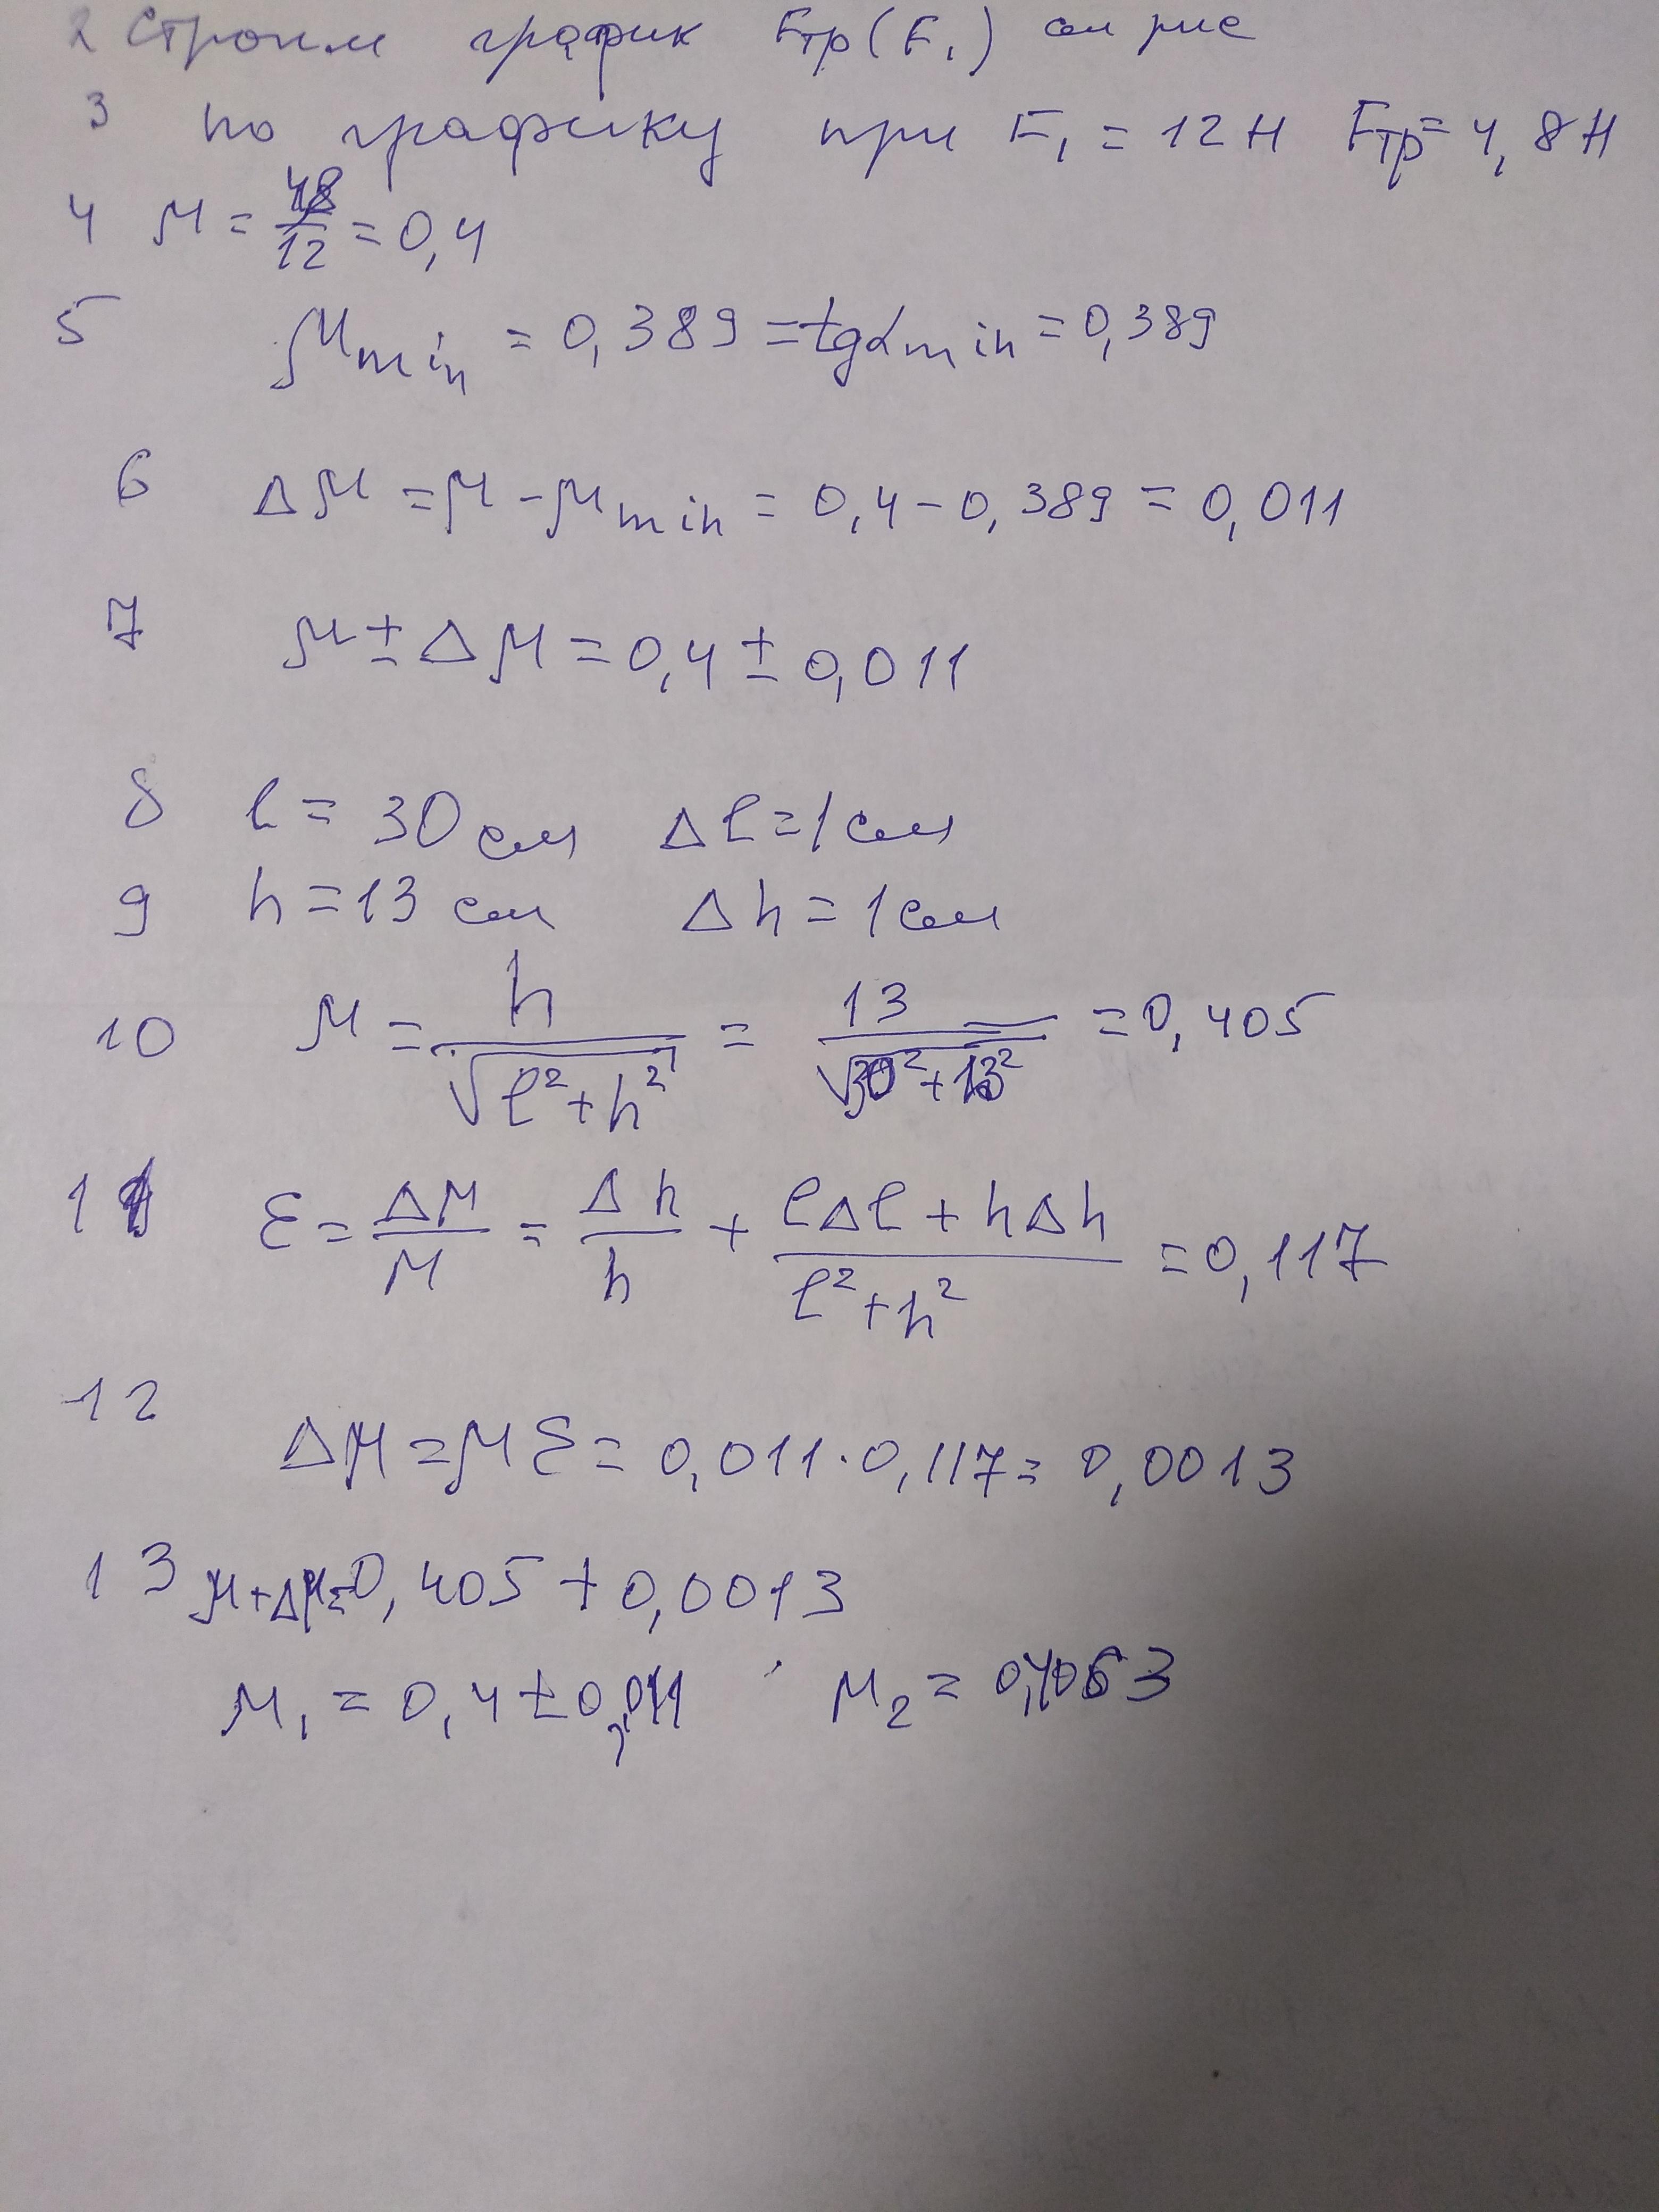 2 Строим график Fтр(F₁) см рис
3 по графику при F₁ = 12 Н Fтр = 4,8 Н
4 μ = 4,8/12 = 0,4
5 μmin = 0,389 = tgαmin = 0,389
6 Δμ = μ - μmin = 0,4 - 0,389 = 0,011
7 μ ± Δμ = 0,4 ± 0,011
8 l = 30 см Δl = 1 см
9 h = 13 см Δh = 1 см
10 μ = h/√(l²+h²) = 13/√(30²+13²) = 0,405
11 ε = Δμ/μ = Δh/h + (lΔl + hΔh)/(l²+h²) = 0,117
12 Δμ = με = 0,011·0,117 = 0,0013
13 μ+Δμ = 0,405 + 0,0013
μ₁ = 0,4 ± 0,011 μ₂ = 0,4063